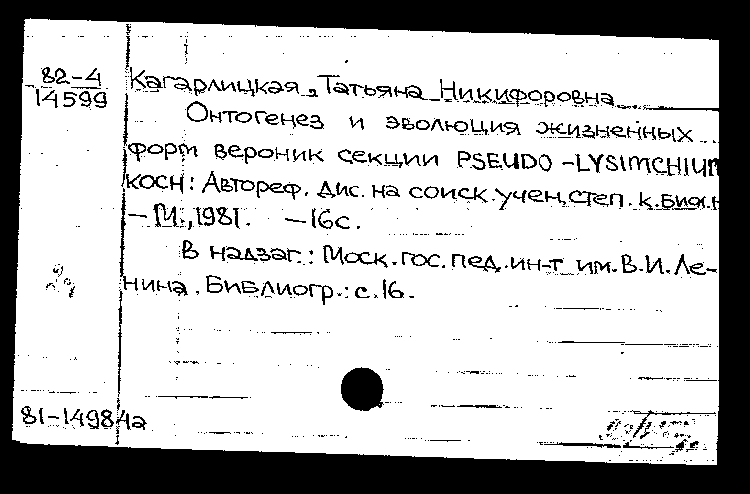 82-4
14599
Кагарлицкая, Татьяна Никифоровна
Онтогенез и эволюция жизненных
форм вероник секции PSEUDO-LYSIMCHIUM
KOCH: Автореф. дис. на соиск. учен. степ. к. биол. н
— М., 1981. — 16 с.
В надзаг.: Моск. гос. пед. ин-т им. В. И. Ле-
нина. Библиогр.: с. 16.
81-14984а